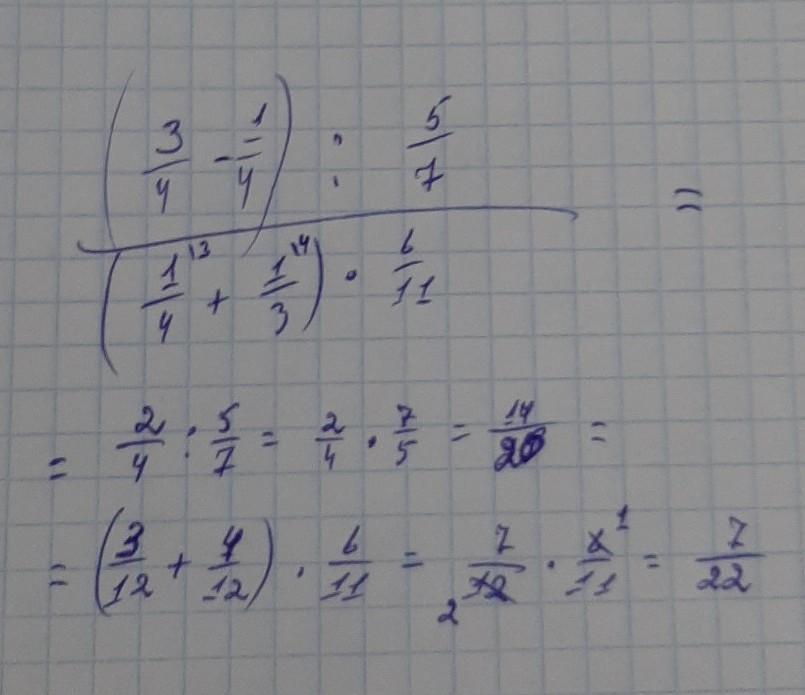 (3/4 - 1/4) : 5/7
(1/4 \3 + 1/3 \4) · 6/11 =
= 2/4 : 5/7 = 2/4 · 7/5 = 14/20 =
= (3/12 + 4/12) · 6/11 = 7/12 2 · 6/11 1 = 7/22